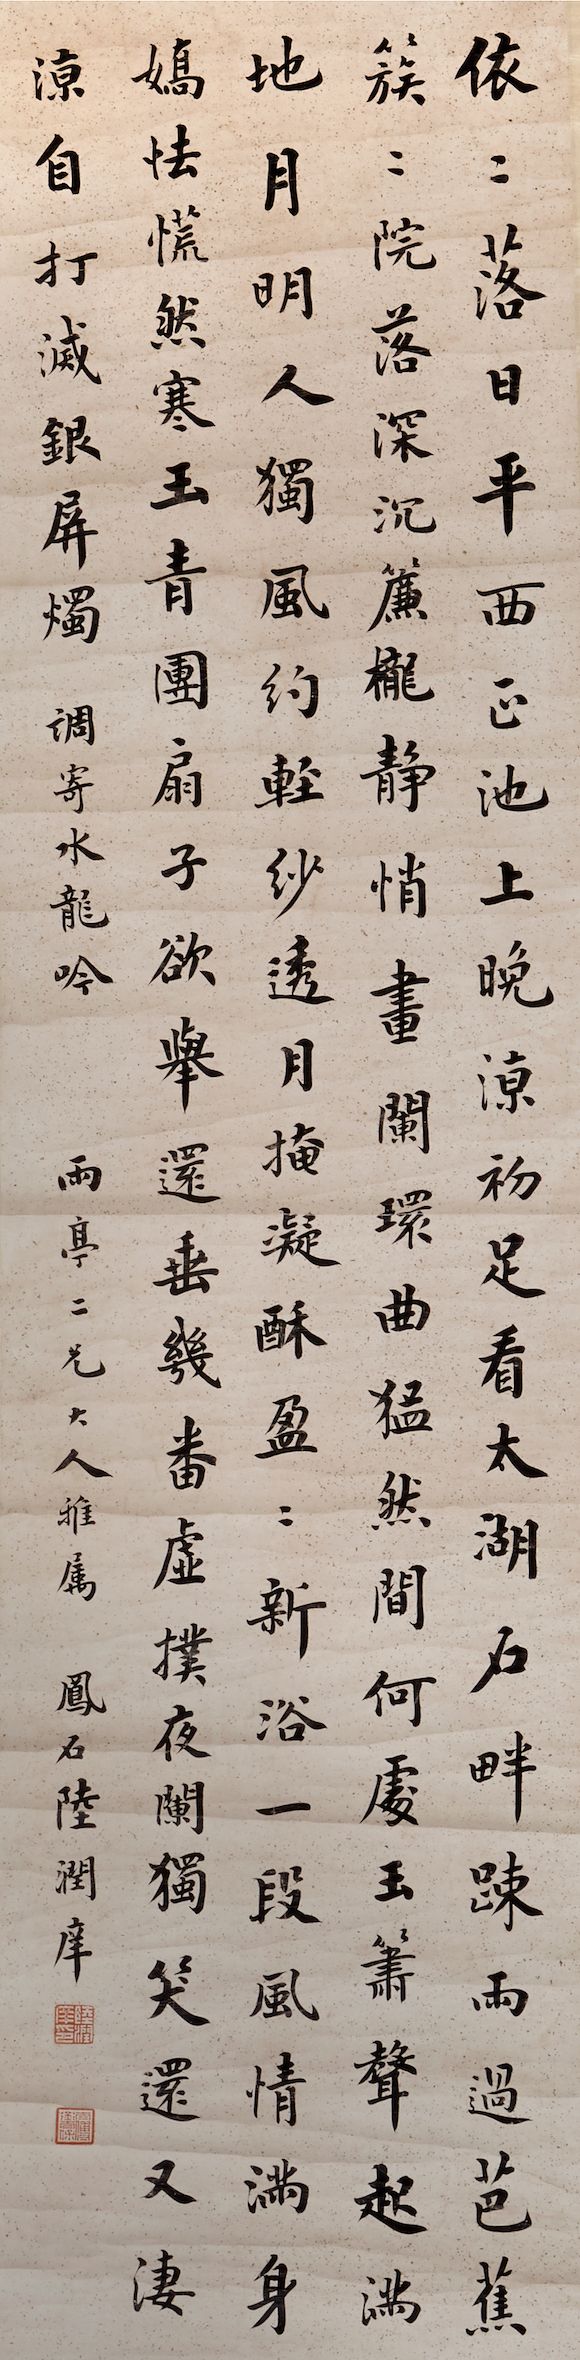 依〻落日平西正池上晚涼初足看太湖石畔踈雨過芭蕉
簇〻院落深沉簾櫳静悄畫闌環曲猛然間何處玉簫聲起滿
地月明人獨風約輕紗透月掩凝酥盈〻新浴一段風情滿身
嬌怯慌然寒玉青團扇子欲舉還垂幾番虛撲夜闌獨笑還又淒
涼自打滅銀屏燭 調寄水龍吟 雨亭二兄大人雅属 鳳石陸潤庠